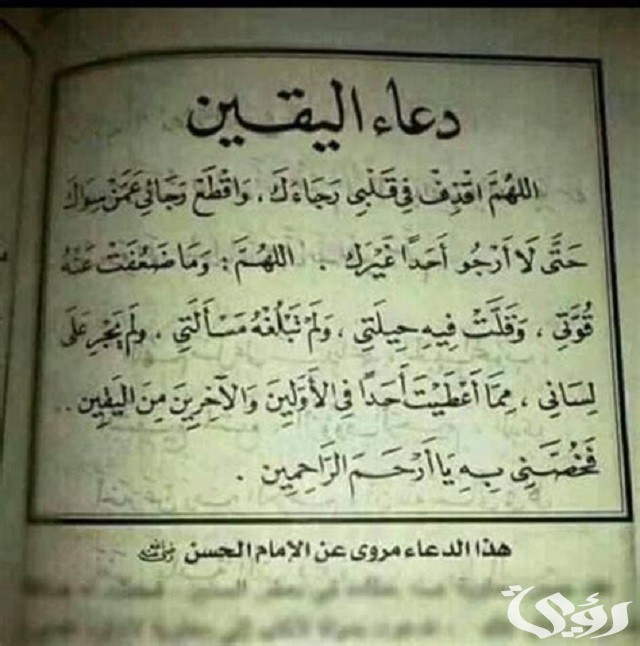 دعاء اليقين
اللهُمَّ اقْذِفْ فِي قَلْبِي رَجَاءَكَ، وَاقْطَعْ رَجَائِي عَمَّنْ سِوَاكَ
حَتَّى لَا أَرْجُو أَحَدًا غَيْرَكَ . اللهُمَّ : وَمَا ضَعُفَتْ عَنْهُ
قُوَّتِي ، وَقَلَّتْ فِيهِ حِيلَتِي ، وَلَمْ تَبْلُغْهُ مَسْأَلَتِي ، وَلَمْ يَجْرِ عَلَى
لِسَانِي ، مِمَّا أَعْطَيْتَ أَحَدًا فِي الأَوَّلِينَ وَالآخِرِينَ مِنَ الْيَقِينِ . .
فَخُصَّنِي بِهِ يَا أَرْحَمَ الرَّاحِمِينَ .
هذا الدعاء مروى عن الإمام الحسن رضي الله عنه
رؤى